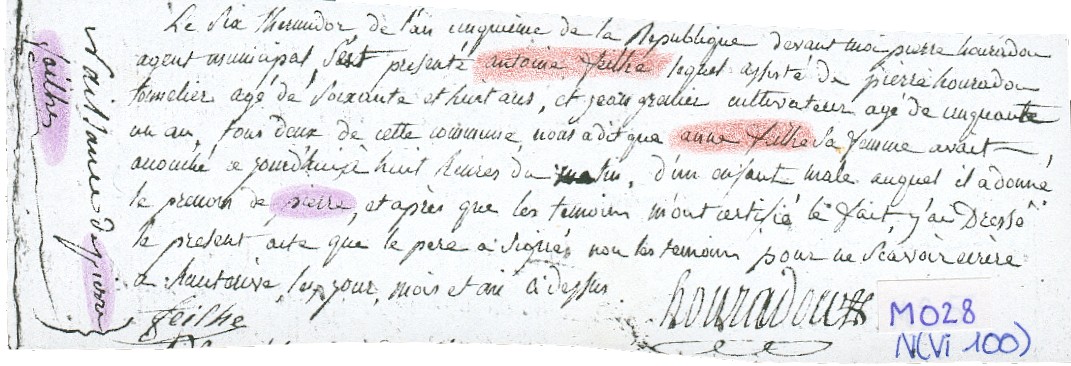 Naissance de pierre
feilhe
Le Six thermidor de l'an cinquieme de la Republique devant moi pierre houradou
agent municipal, s'est presenté antoine feilhe lequel assisté de pierre houradou
tonnelier agé de soixante et huit ans, et jean granier cultivateur agé de cinquante
un an, tous deux de cette commune, nous a dit que anne feilhe sa femme avait
accouché ce jourd'hui à huit heures du matin, d'un enfant male auquel il a donné
le prenom de pierre, et après que les temoins m'ont certifié le fait, j'ai Dressé
le present acte que le pere a signé, non les temoins pour ne scavoir écrire
a hauterive, les jour, mois et an ci dessus
feilhe
houradou
M028
N(Vi 100)